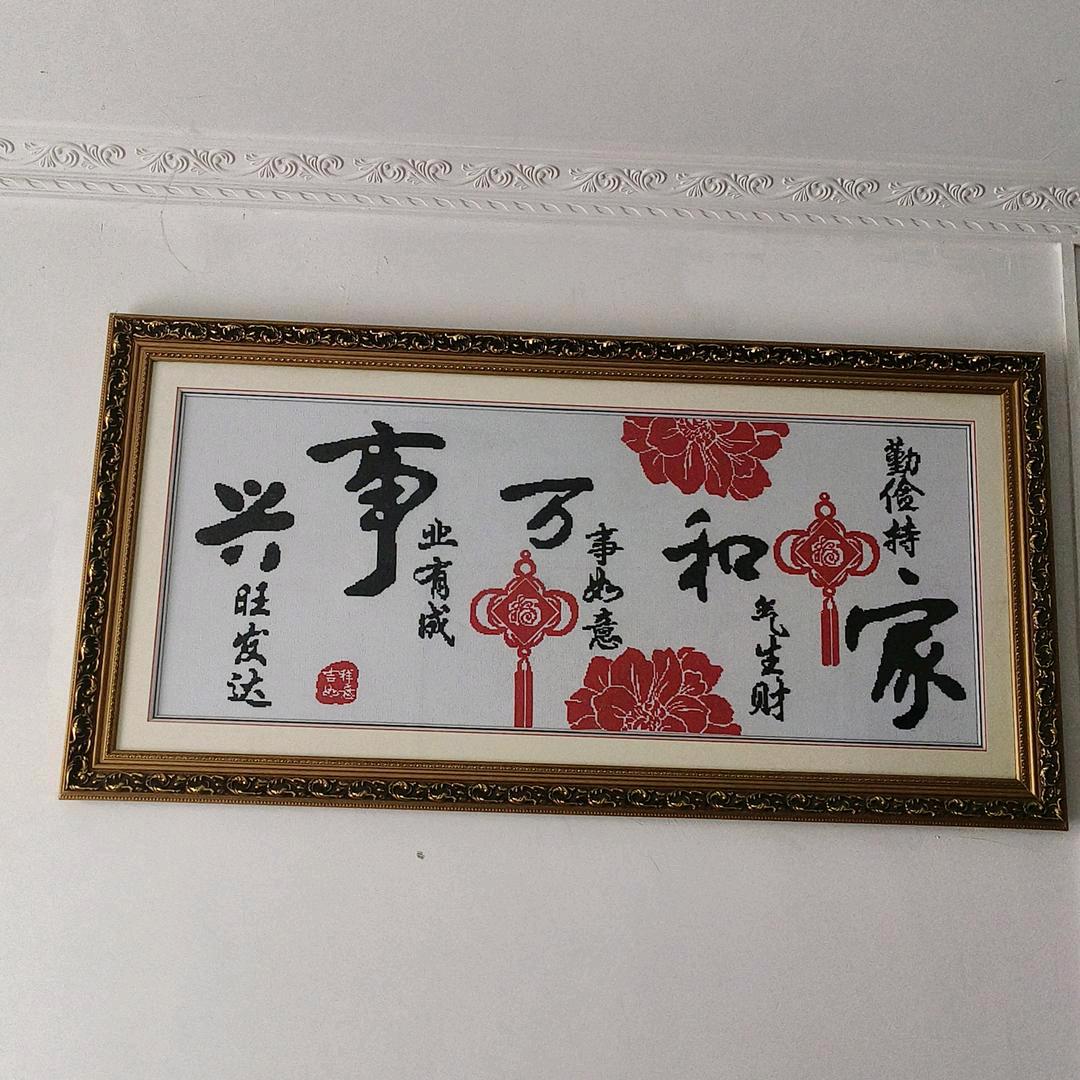 勤俭持家
和气生财
万事如意
事业有成
兴旺发达
福
福
吉祥
如意